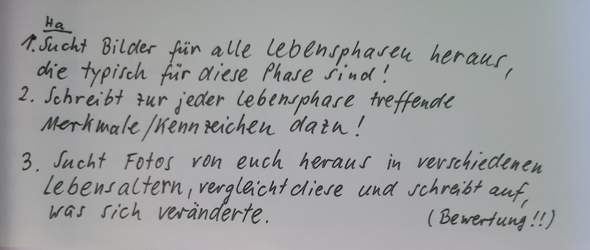 Ha
1. Sucht Bilder für alle Lebensphasen heraus,
die typisch für diese Phase sind!
2. Schreibt zur jeder Lebensphase treffende
Merkmale/Kennzeichen dazu!
3. Sucht Fotos von euch heraus in verschiedenen
Lebensaltern, vergleicht diese und schreibt auf,
was sich veränderte. (Bewertung!!)